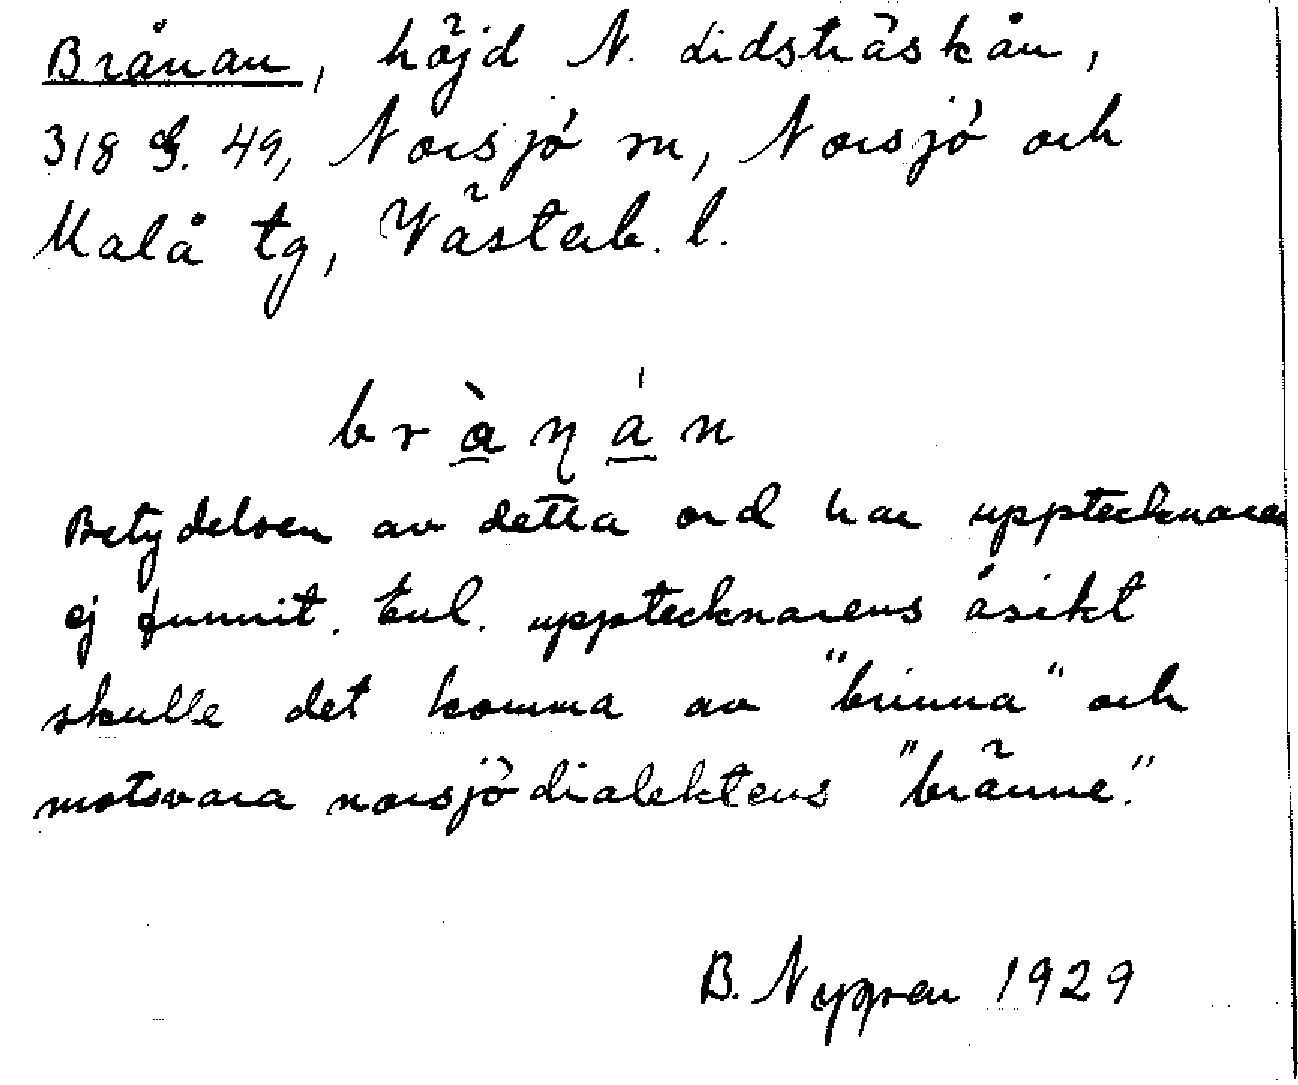 Brånan, höjd N. Lidsträskån,
318 G. 49, Norsjö sn, Norsjö och
Malå tg, Västerb. l.
brànán
Betydelsen av detta ord har upptecknaren
ej funnit. Enl. upptecknarens åsikt
skulle det komma av "brinna" och
motsvara norsjödialektens "bränne".
B. Nygren 1929